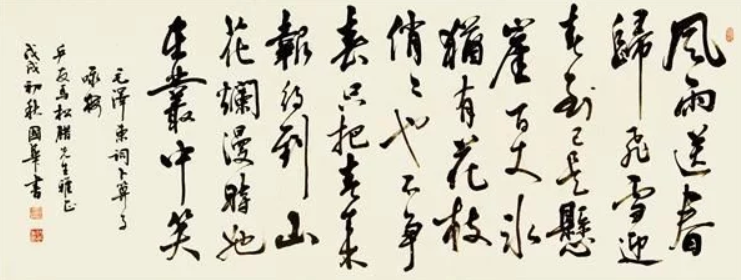 風雨送春
歸飛雪迎
春到已是懸
崖百丈冰
猶有花枝
俏〻也不争
春只把春来
報待到山
花爛漫時她
在叢中笑
毛澤東詞卜算子
咏梅
乒友馬松腊先生雅正
戊戌初秋國華書